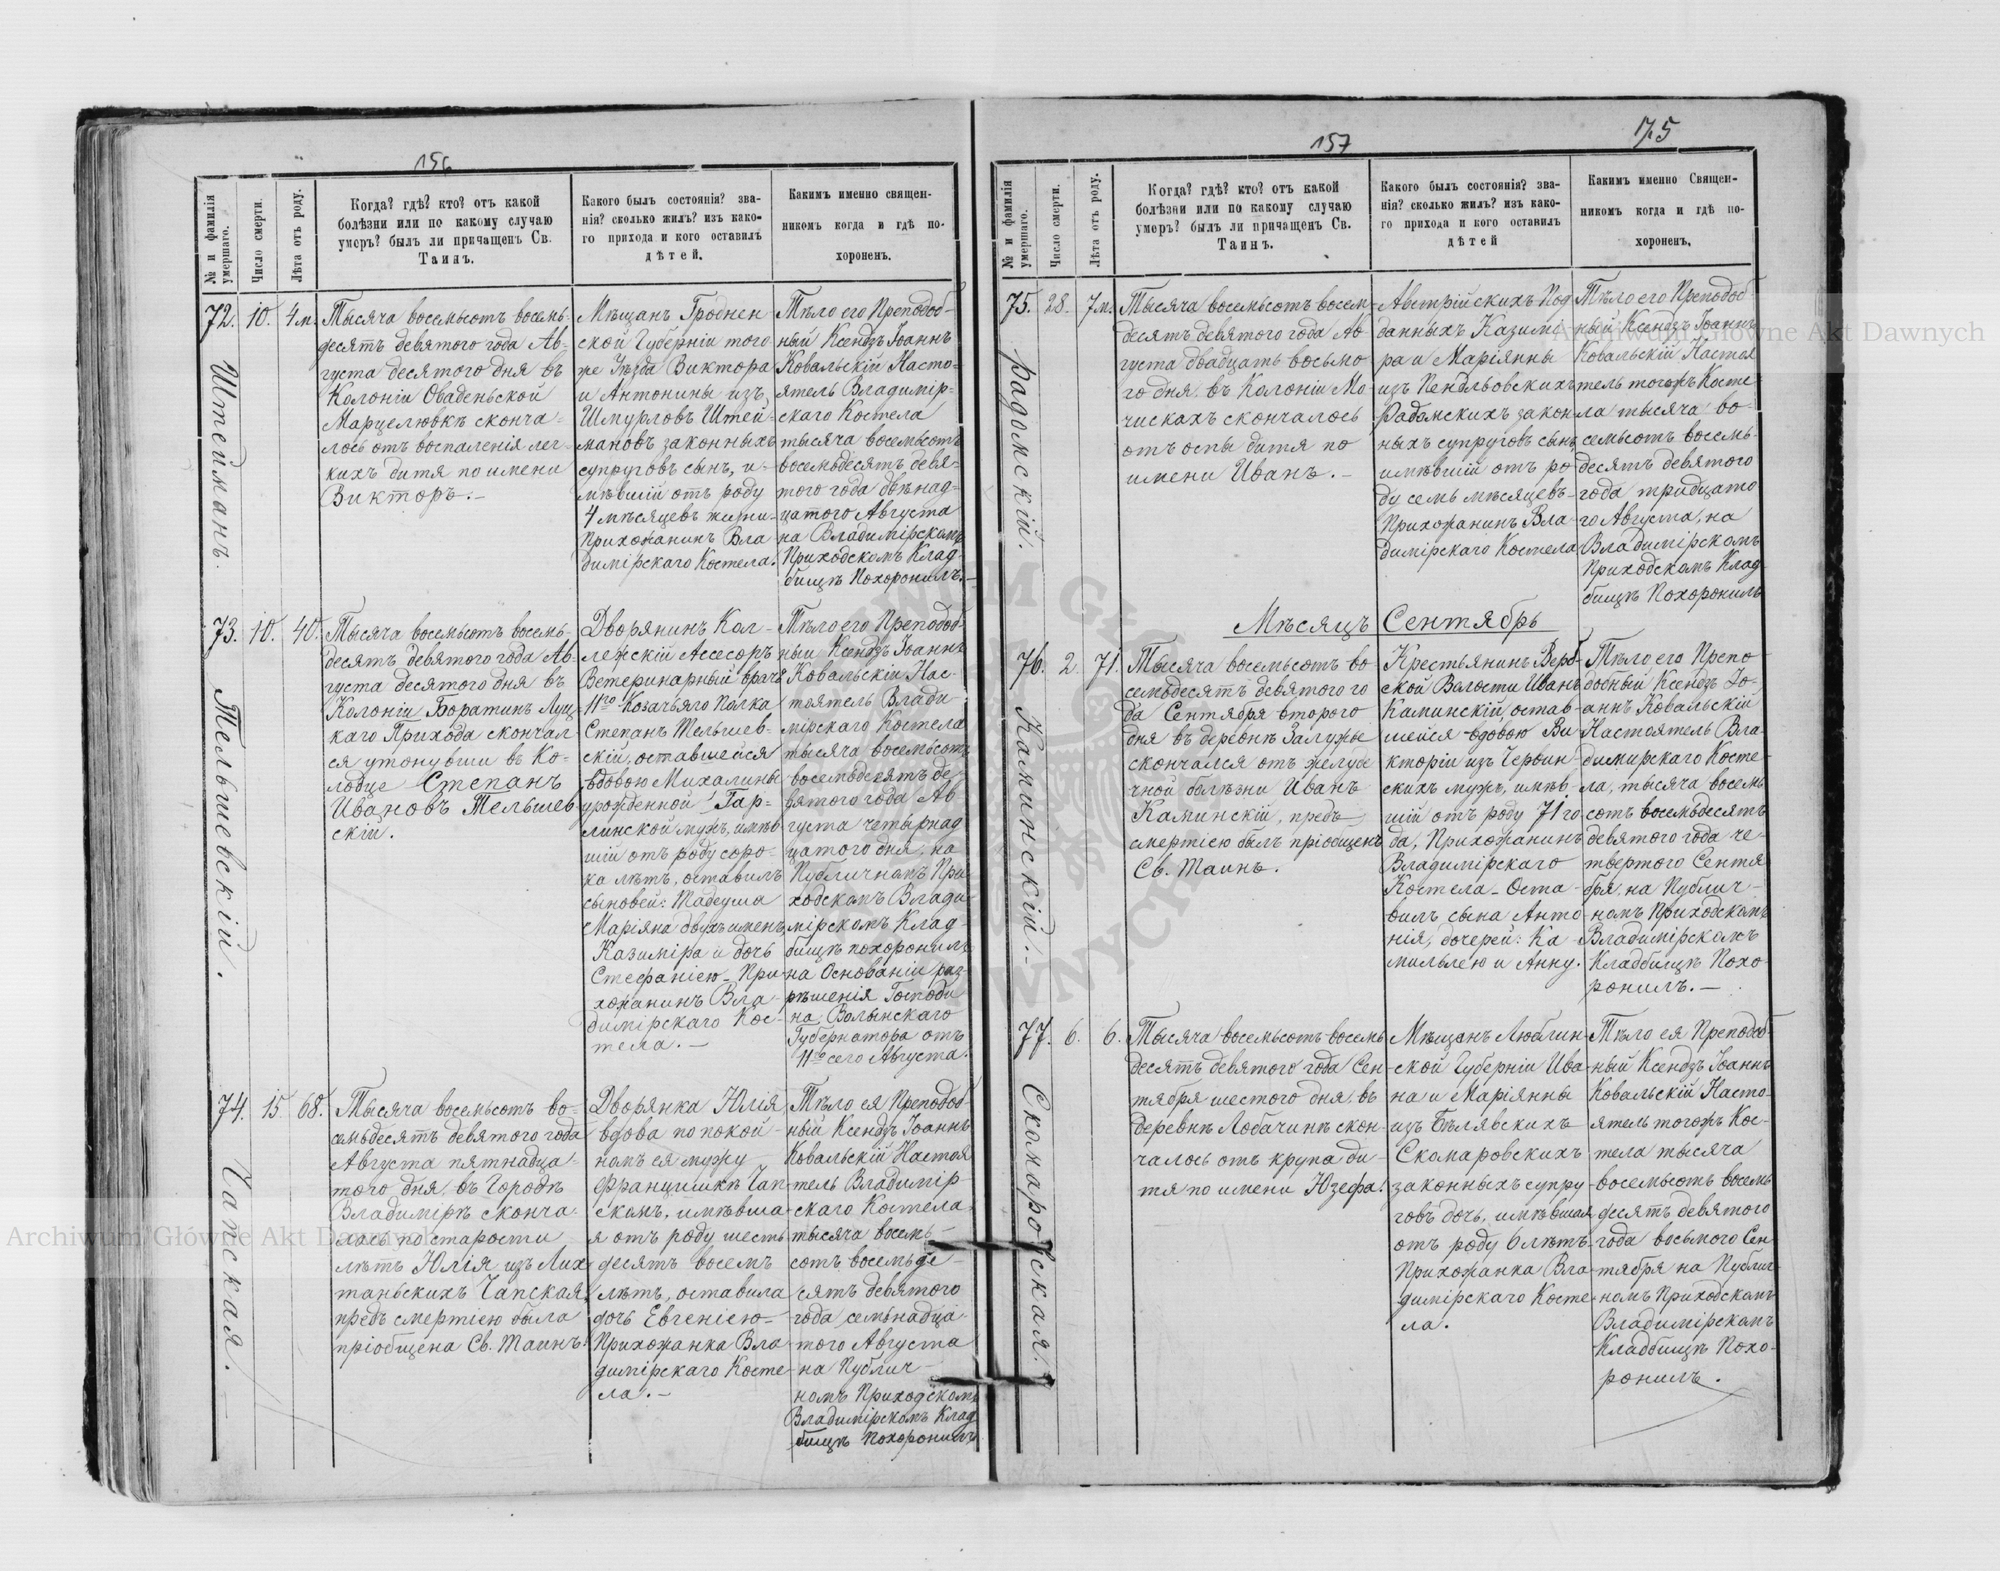 156
№ и фамилія умершаго.
Число смерти.
Лѣта отъ роду.
Когда? гдѣ? кто? отъ какой
болѣзни или по какому случаю
умеръ? былъ ли причащенъ Св.
Таинъ.
Какого былъ состоянія? зва-
нія? сколько жилъ? изъ како-
го прихода и кого оставилъ
дѣтей.
Какимъ именно священ-
никомъ когда и гдѣ по-
хороненъ.
72. Штейманъ.
10.
4 м.
Тысяча восемьсотъ восемь-
десятъ девятого года Ав-
густа десятого дня въ
Колоніи Оваденьской
Марцелювкѣ сконча-
лось отъ воспаленія лег-
кихъ дитя по имени
Викторъ.-
Мѣщанъ Гроднен
ской Губерніи того
же Уѣзда Виктора
и Антонины изъ
Шмурловъ Штей-
мановъ законныхъ
супруговъ сынъ, и-
мѣвшій отъ роду
4 мѣсяцевъ жизни-
Прихожанинъ Вла
димірскаго Костела.
Тѣло его Преподоб-
ный Ксендзъ Іоаннъ
Ковальскій Насто-
ятель Владимір-
скаго Костела
тысяча восемьсотъ
восемьдесятъ девя-
того года двѣнад-
цатого Августа
на Владимірскомъ
Приходскомъ Клад-
бищѣ Похоронилъ.-
73. Тельшевскій.
10.
40.
Тысяча восемьсотъ восемь-
десятъ девятого года Ав-
густа десятого дня въ
Колоніи Боратинъ Луц-
каго Прихода скончал
ся утонувши въ Ко-
лодце Степанъ
Ивановъ Тельшев
скій.
Дворянинъ Кол-
лежскій Асесоръ
Ветеринарный врачъ
11го Козачьяго Полка
Степанъ Тельшев-
скій, оставшейся
вдовою Михалины
урожденной Гар-
линской мужъ, имѣв
шій отъ роду соро-
ка лѣтъ, оставилъ
сыновей: Тадеуша
Маріяна двухъ именъ,
Казиміра и дочь
Стефанію- При-
хожанинъ Вла-
димірскаго Кос-
тела.-
Тѣло его Преподоб
ный Ксендзъ Іоаннъ
Ковальскій Нас-
тоятель Влади-
мірскаго Костела
тысяча восемьсотъ
восемьдесятъ де-
вятого года Ав-
густа четырнад
цатого дня, на
Публичномъ При
ходскомъ Влади-
мірскомъ Клад-
бищѣ похоронилъ
на Основаніи раз-
рѣшенія Господи
на Волынскаго
Губернатора отъ
11го сего Августа.
74. Чапская.
15
68.
Тысяча восемьсотъ во-
семьдесятъ девятого года
Августа пятнадца-
того дня, въ Городѣ
Владимірѣ сконча-
лась по старости
лѣтъ Юлія изъ Лих
таньскихъ Чапская
предъ смертію была
пріобщена Св. Таинъ.
Дворянка Юлія,
вдова по покой-
номъ ея мужу
Францишкѣ Чап-
скомъ, имѣвша-
я отъ роду шесть
десятъ восемъ
лѣтъ, оставила
дочь Евгенію-
Прихожанка Вла
димірскаго Косте-
ла.-
Тѣло ея Преподоб
ный Ксендзъ Іоаннъ
Ковальскій Настоя
тель Владимір-
скаго Костела
тысяча восемь-
сотъ восемьде-
сятъ девятого
года семьнадца-
того Августа
на Публич-
номъ Приходскомъ
Владимірскомъ Клад
бищѣ Похоронилъ
157
175
№ и фамилія умершаго.
Число смерти.
Лѣта отъ роду.
Когда? гдѣ? кто? отъ какой
болѣзни или по какому случаю
умеръ? былъ ли причащенъ Св.
Таинъ.
Какого былъ состоянія? зва-
нія? сколько жилъ? изъ како-
го прихода и кого оставилъ
дѣтей
Какимъ именно Священ-
никомъ когда и гдѣ по-
хороненъ.
75. Радомскій.
28.
7 м.
Тысяча восемьсотъ восем-
десятъ девятого года Ав
густа двадцать восьмо
го дня въ Колоніи Мо-
чискахъ скончалось
отъ оспы дитя по
имени Иванъ.-
Австрійскихъ Под
данныхъ Казимі-
ра и Маріянны
изъ Пендльовскихъ
Радомскихъ закон
ныхъ супруговъ сынъ,
имѣвшій отъ ро-
ду семь мѣсяцевъ-
Прихожанинъ Вла
димірскаго Костела
Тѣло его Преподоб
ный Ксендзъ Іоаннъ
Ковальскій Настоя
тель тогожъ Косте-
ла тысяча во-
семьсотъ восемь-
десятъ девятого
года тридцато
го Августа, на
Владимірскомъ
Приходскомъ Клад-
бищѣ Похоронилъ
Мѣсяцъ Сентябрь
76. Каминскій.-
2
71.
Тысяча восемьсотъ во
семьдесятъ девятого го
да Сентября второго
дня въ деревнѣ Залужье
скончался отъ желудо
чной болѣзни Иванъ
Каминскій, предъ
смертію былъ пріобщенъ
Св. Таинъ.
Крестьянинъ Верб-
ской Волости Иванъ
Каминскій, остав-
шейся вдовою Ви
кторіи изъ Червин-
скихъ мужъ, имѣв-
шій отъ роду 71 го
да, Прихожанинъ
Владимірскаго
Костела- Оста-
вилъ сына Анто
нія, дочерей: Ка
мильлею и Анну.
Тѣло его Препо
добный Ксендзъ Іо-
аннъ Ковальскій
Настоятель Вла-
димирскаго Косте-
ла, тысяча восемь
сотъ восемьдесятъ
девятого года че-
твертого Сентя
бря, на Публич-
номъ Приходскомъ
Владимірскомъ
Кладбищѣ Похо-
ронилъ.-
77. Скомаровская.
6.
6.
Тысяча восемьсотъ восемь
десятъ девятого года Сен
тября шестого дня, въ
деревнѣ Лобачинѣ скон-
чалось отъ крупа ди-
тя по имени Юзефа.
Мѣщанъ Люблин
ской Губерніи Ива
на и Маріянны
изъ Бѣлявскихъ
Скомаровскихъ
законныхъ супру
говъ дочь, имѣвшая
отъ роду 6 лѣтъ-
Прихожанка Вла-
димірскаго Косте
ла.
Тѣло ея Преподоб
ный Ксендзъ Іоаннъ
Ковальскій Насто-
ятель тогожъ Кос-
тела тысяча
восемьсотъ восемь
десятъ девятого
года восьмого Сен
тября на Публич-
номъ Приходскомъ
Владимірскомъ
Кладбищѣ Похо-
ронилъ.
Archiwum Główne Akt Dawnych
Archiwum Główne Akt Dawnych